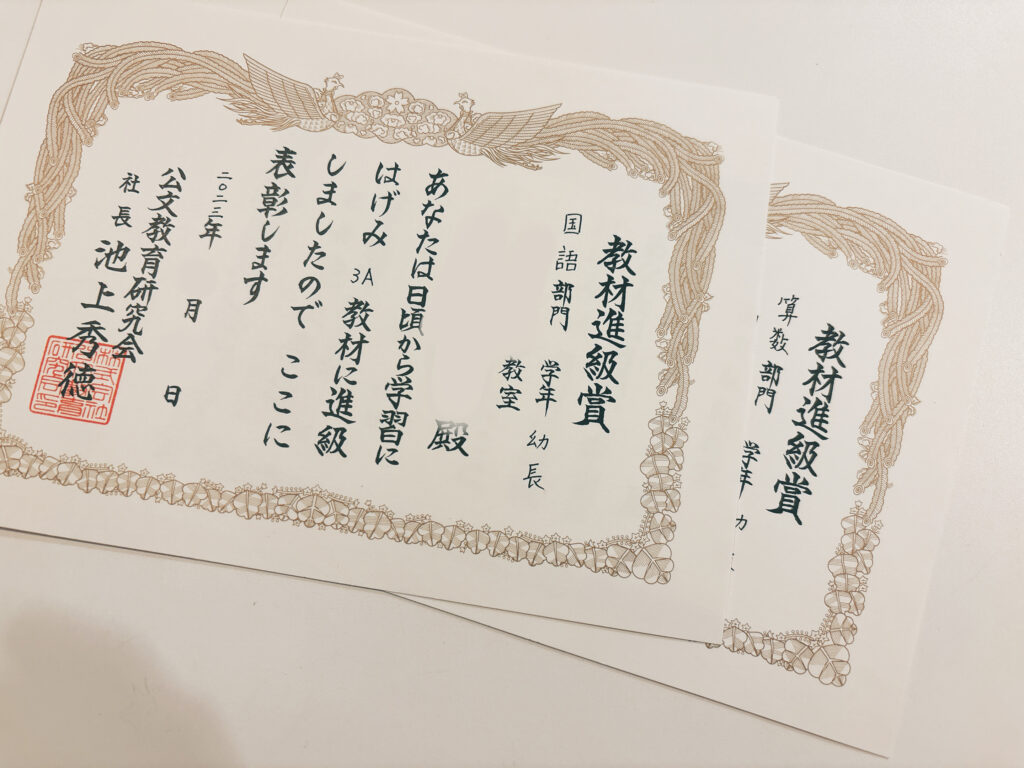 教材進級賞
国語部門
学年 幼長
教室
殿
あなたは日頃から学習に
はげみ 3A 教材に進級
しましたので ここに
表彰します
二〇二三年 月 日
公文教育研究会
社長 池上秀徳
教材進級賞
算数部門
学年